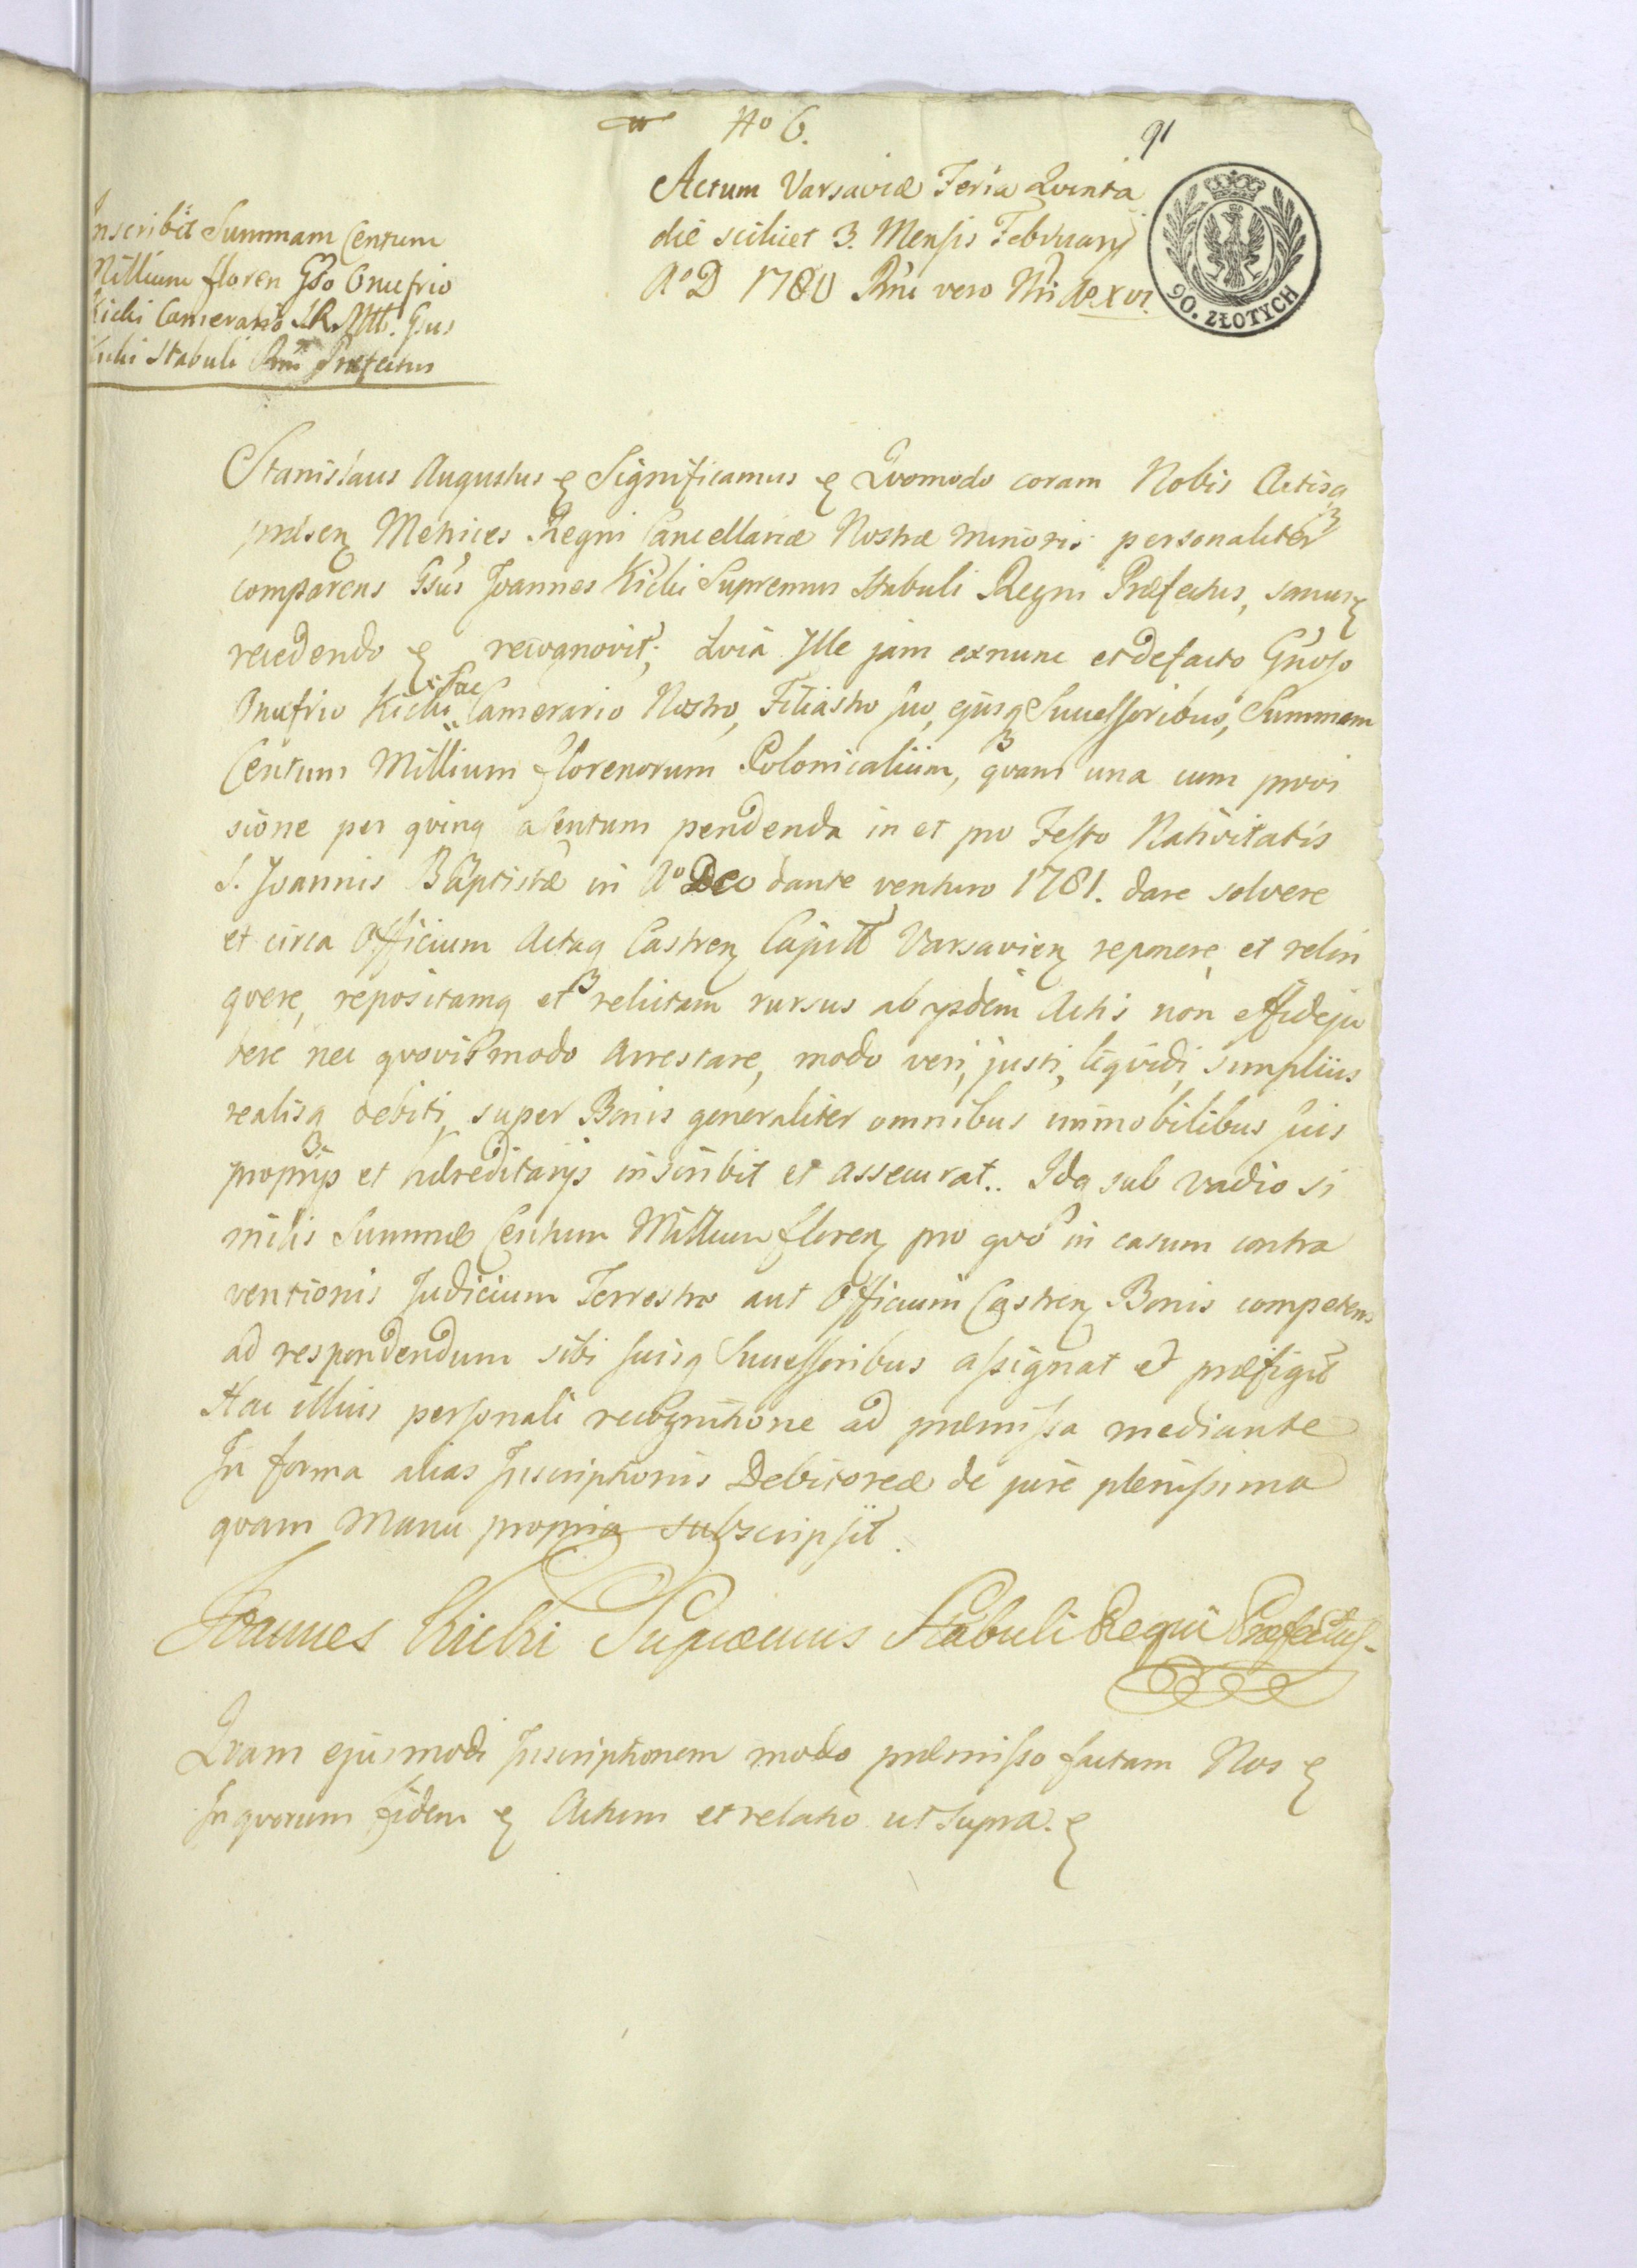 No 6.
91
Actum Varsaviæ Feria Qvinta
die scilicet 3. Mensis Februarij
Ao D 1780 Rni vero Nri Ao XVI.
90. ZŁOTYCH
Inscribit Summam Centum
Millium floren Gso Onufrio
Kicki Camerario S.R. Mtt. Gsus
Kicki Stabuli Rni Præfectus
Stanislaus Augustus & Significamus & Qvomodo coram Nobis Actisq
præsen Metrices Regni Cancellariæ Nostræ minoris personaliter
comparens Gsus Joannes Kicki Supremus Stabuli Regni Præfectus, sanus &
recedendo & recognovit; Qvia Ille jam exnunc et defacto Gnoso
Onufrio Kicki Camerario Nostro, Filiastro suo, ejusq Successoribus, Summam
Centum Millium florenorum Polonicalium, qvam una cum provi
sione per qvinq a Centum pendenda in et pro Festo Nativitatis
S. Joannis Baptistæ in Ao Deo dante venturo 1781. dare solvere
et circa Officium Actaq Castren Capitt Varsavien reponere, et relin
qvere, repositamq et relictam rursus ab ijsdem Actis non effideju
bere nec qvovismodo arrestare, modo veri, justi, liqvidi, simplicis
realisq debiti, super Bonis generaliter omnibus immobilibus suis
proprijs et hæreditarijs inscribit et assecurat. Idq sub vadio si
milis Summæ Centum Millium floren pro qvo in casum contra
ventionis Judicium Terrestre aut Officium Castren Bonis competens
ad respondendum sibi suisq Successoribus assignat et præfigit
Hac illius personali recognitione ad præmissa mediante
In forma alias Inscriptionis Debitoreæ de jure plenissima
qvam manu propria subscripsit.
Joannes Kicki Supræmus Stabuli Regni Præfectus
Qvam ejusmodi Inscriptionem modo præmisso factam Nos &
In qvorum fidem & Actum et relatio ut supra. &